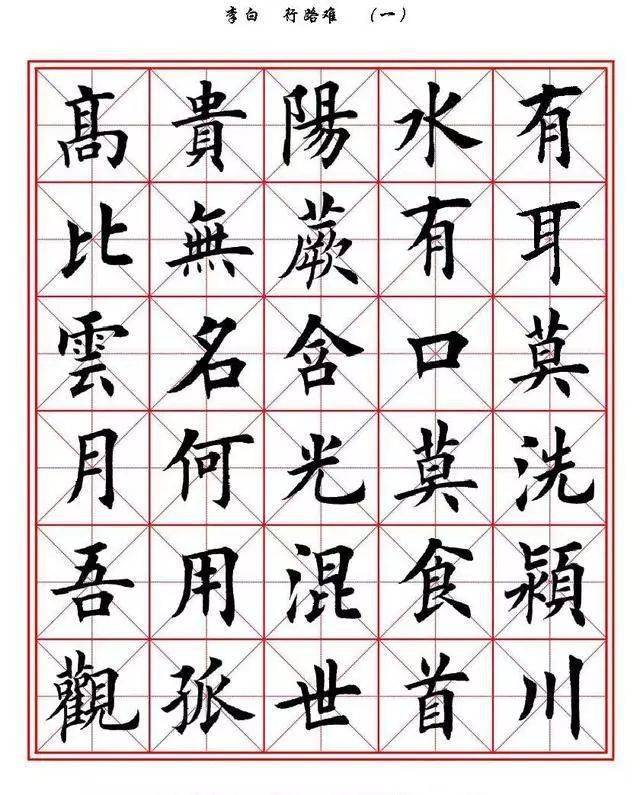 李白 行路难 （一）
有耳莫洗潁川
水有口莫食首
陽蕨含光混世
貴無名何用孤
髙比雲月吾觀